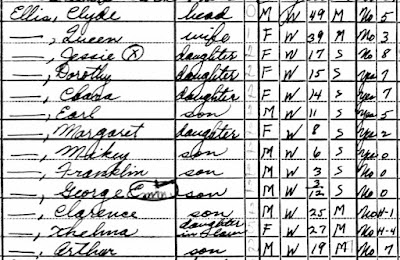 Ellis, Clyde head 0 M W 49 M No 5
—, Queen wife 1 F W 39 M No 3
—, Jessie Ⓧ daughter 2 F W 17 S No 8
—, Dorothy daughter 2 F W 15 S yes 7
—, daughter 2 F W 14 S yes 7
—, Earl son M W 11 S yes 5
—, Margaret daughter F W 8 S yes 2
—, son M W 6 S yes 0
—, Franklin son M W 3 S No 0
—, George son M W 3/12 S No 0
—, Clarence son M W 25 M No H-1
—, Thelma daughter in law F W 27 M No H-4
—, Arthur son M W 19 M No 7